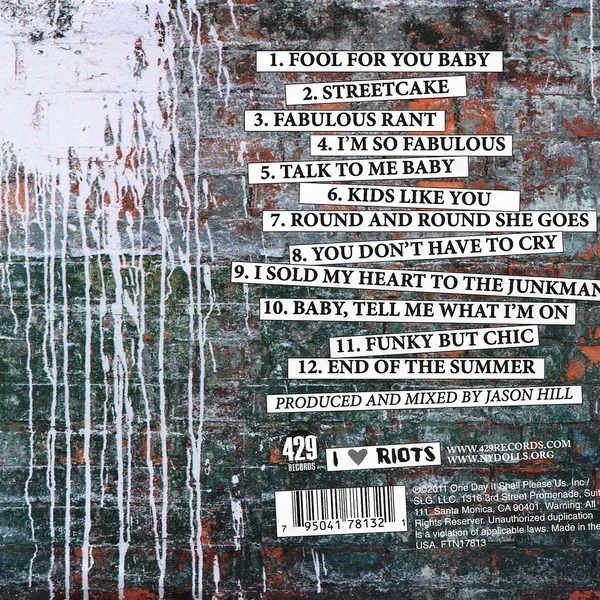 1. FOOL FOR YOU BABY
2. STREETCAKE
3. FABULOUS RANT
4. I'M SO FABULOUS
5. TALK TO ME BABY
6. KIDS LIKE YOU
7. ROUND AND ROUND SHE GOES
8. YOU DON'T HAVE TO CRY
9. I SOLD MY HEART TO THE JUNKMAN
10. BABY, TELL ME WHAT I'M ON
11. FUNKY BUT CHIC
12. END OF THE SUMMER
PRODUCED AND MIXED BY JASON HILL
429
RECORDS
I ♥ RIOTS
WWW.429RECORDS.COM
WWW.NYDOLLS.ORG
7 95041 78132 1
℗©2011 One Day It Shall Please Us, Inc /
SLG, LLC. 1316 3rd Street Promenade, Suit
111, Santa Monica, CA 90401. Warning: All
Rights Reserver. Unauthorized duplication
is a violation of applicable laws. Made in the
USA. FTN17813